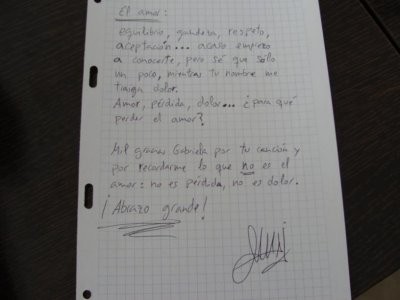 El amor:
equilibrio, grandeza, respeto,
aceptación... acaso empiezo
a conocerte, pero sé que sólo
un poco, mientras tu nombre me
traiga dolor.
Amor, pérdida, dolor... ¿para qué
perder el amor?
Mil gracias Gabriela por tu canción y
por recordarme lo que no es el
amor: no es pérdida, no es dolor.
¡Abrazo grande!